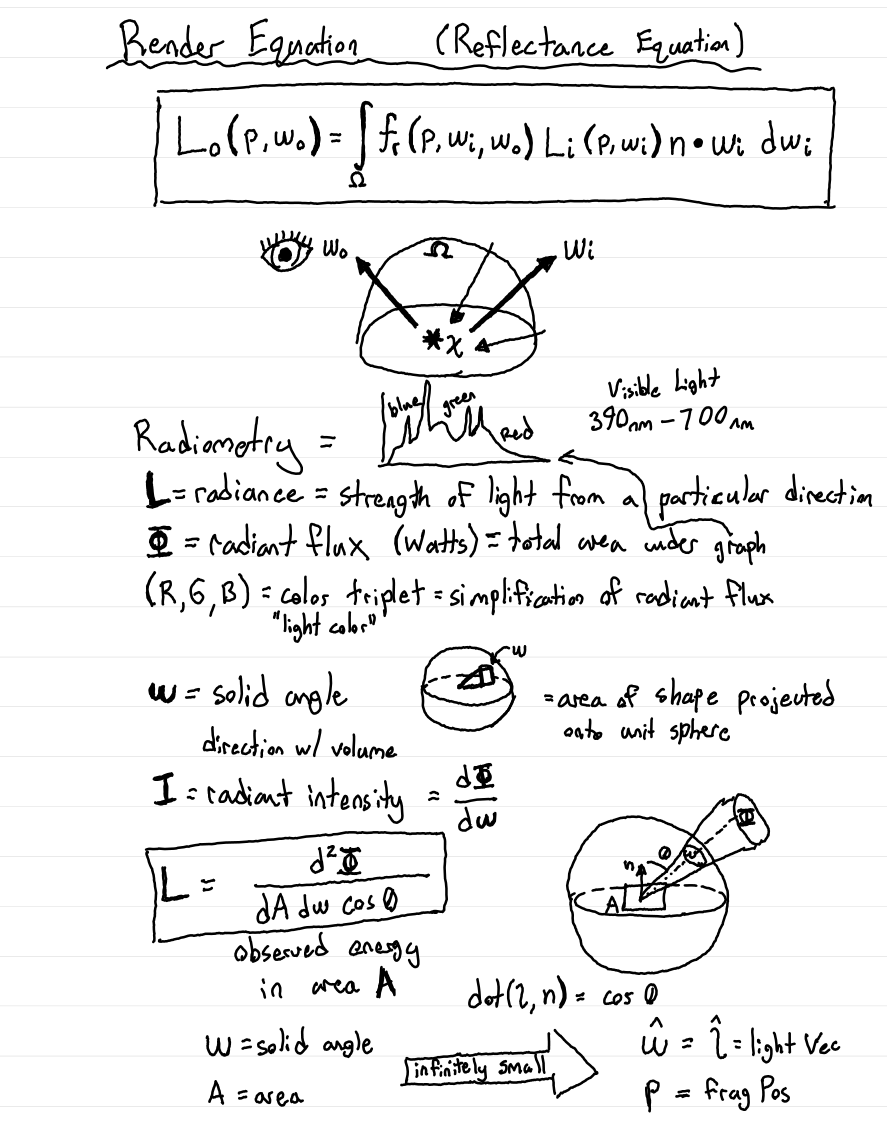 Render Equation (Reflectance Equation)
L₀(p, w₀) = ∫Ω fᵣ(p, wᵢ, w₀) Lᵢ(p, wᵢ) n • wᵢ dwᵢ
w₀ Ω wᵢ
x
blue green Red
Visible Light
390nm – 700nm
Radiometry =
L = radiance = strength of light from a particular direction
Φ = radiant flux (Watts) = total area under graph
(R, G, B) = color triplet = simplification of radiant flux
"light color"
w
w = solid angle = area of shape projected
onto unit sphere
direction w/ volume
I = radiant intensity = dΦ/dw
Φ
n θ w
A
L = d²Φ / dA dw cos θ
observed energy
in area A
dot(l, n) = cos θ
w = solid angle
infinitely small
ŵ = l̂ = light Vec
A = area
p = frag Pos